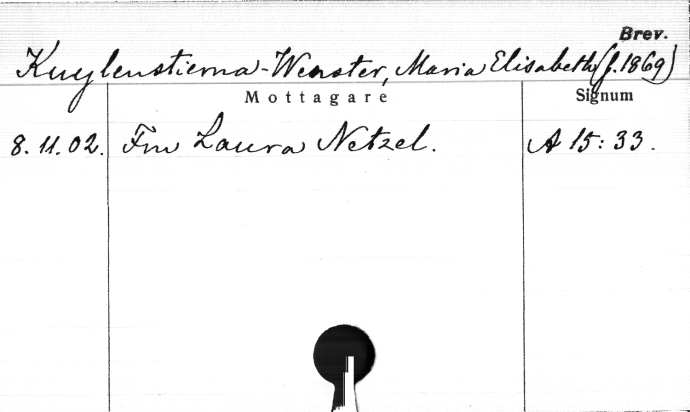 Brev.
Kuylenstierna-Wenster, Maria Elisabeth (f. 1869)
Mottagare Signum
8. 11. 02. Fru Laura Netzel. A 15: 33.